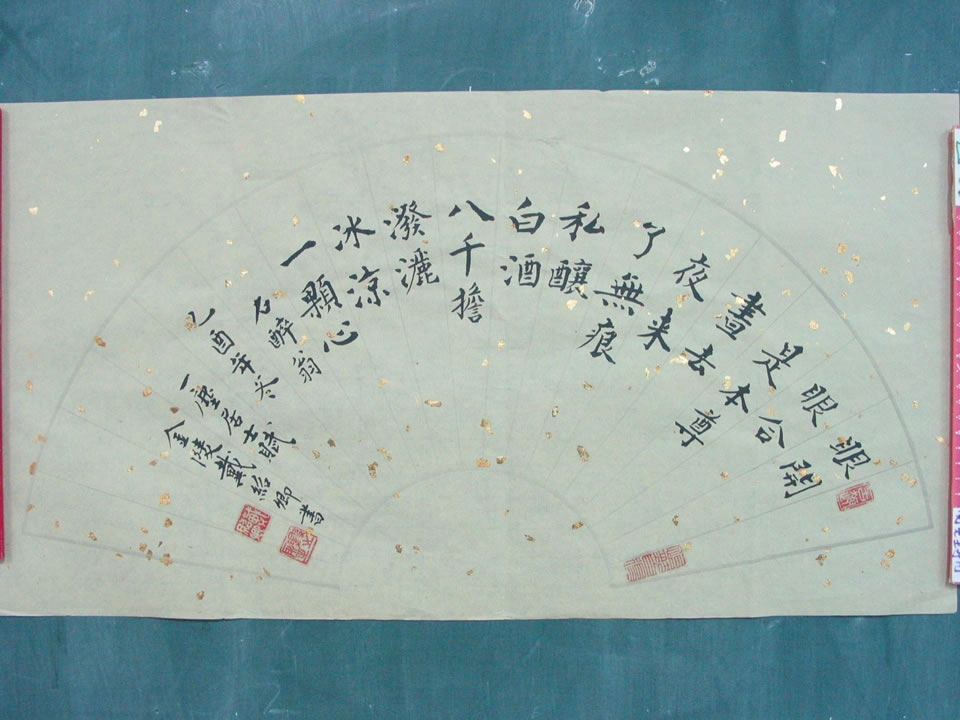 眼開
眼合
是本尊
晝去
夜来
了無痕
私釀
白酒
八千擔
潑灑
冰涼
一顆心
右醉翁
乙酉年冬
一塵居士賦
金陵戴紹卿書